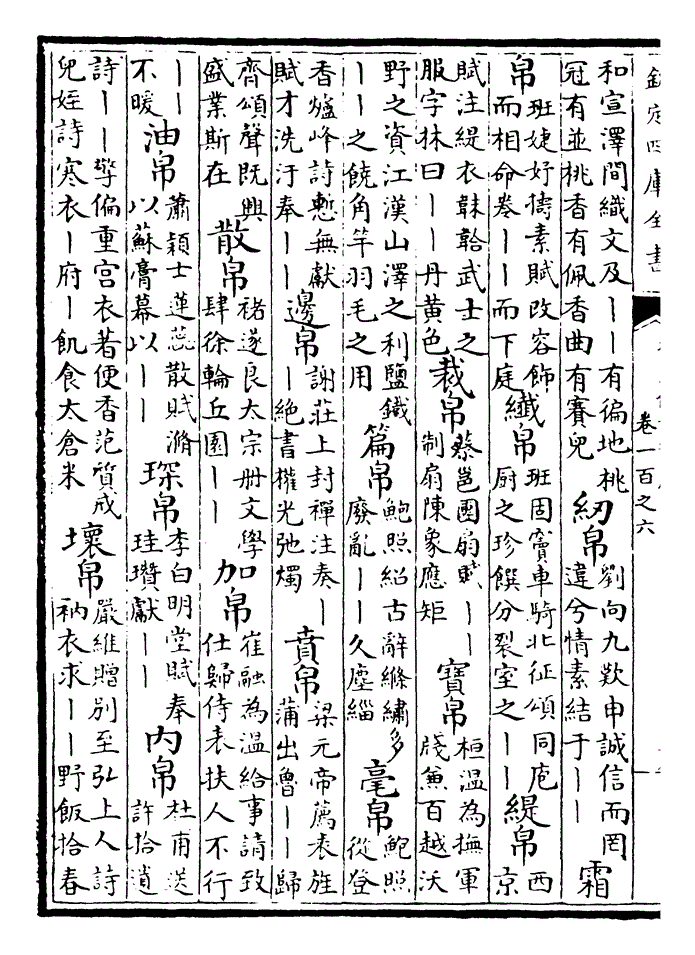 欽定四庫全書
卷一百之六
和宣澤間織文及丨丨有徧地桃
冠有並桃香有佩香曲有賽兒
紉帛
劉向九歎申誠信而罔
違兮情素結于丨丨
霜
帛
班婕妤擣素賦改容飾
而相命卷丨丨而下庭
纖帛
班固竇車騎北征頌同庖
厨之珍饌分裂室之丨丨
緹帛
西
京
賦注緹衣韎韐武士之
服字林曰丨丨丹黄色
裁帛
蔡邕團扇賦丨丨
制扇陳象應矩
寶帛
桓溫為撫軍
牋兼百越沃
野之資江漢山澤之利鹽鐵
丨丨之饒角竿羽毛之用
篇帛
鮑照紹古辭絛繡多
廢亂丨丨久塵緇
毫帛
鮑照
從登
香爐峰詩慙無獻
賦才洗汙奉丨丨
邊帛
謝莊上封禪注奏丨
丨絶書權光弛燭
賁帛
梁元帝薦表旌
蒲出魯丨丨歸
齊頌聲既興
盛業斯在
散帛
褚遂良太宗册文學
肆徐輪丘園丨丨
加帛
崔融為溫給事請致
仕歸侍表扶人不行
丨丨
不暖
油帛
蕭穎士蓮蕊散賦滫
以蘇膏幕以丨丨
琛帛
李白明堂賦奉
珪瓚獻丨丨
内帛
杜甫送
許拾遺
詩丨丨擎偏重宫衣著便香范質戒
兒姪詩寒衣丨府丨飢食太倉米
壞帛
嚴維贈别至弘上人詩
衲衣求丨丨野飯拾春